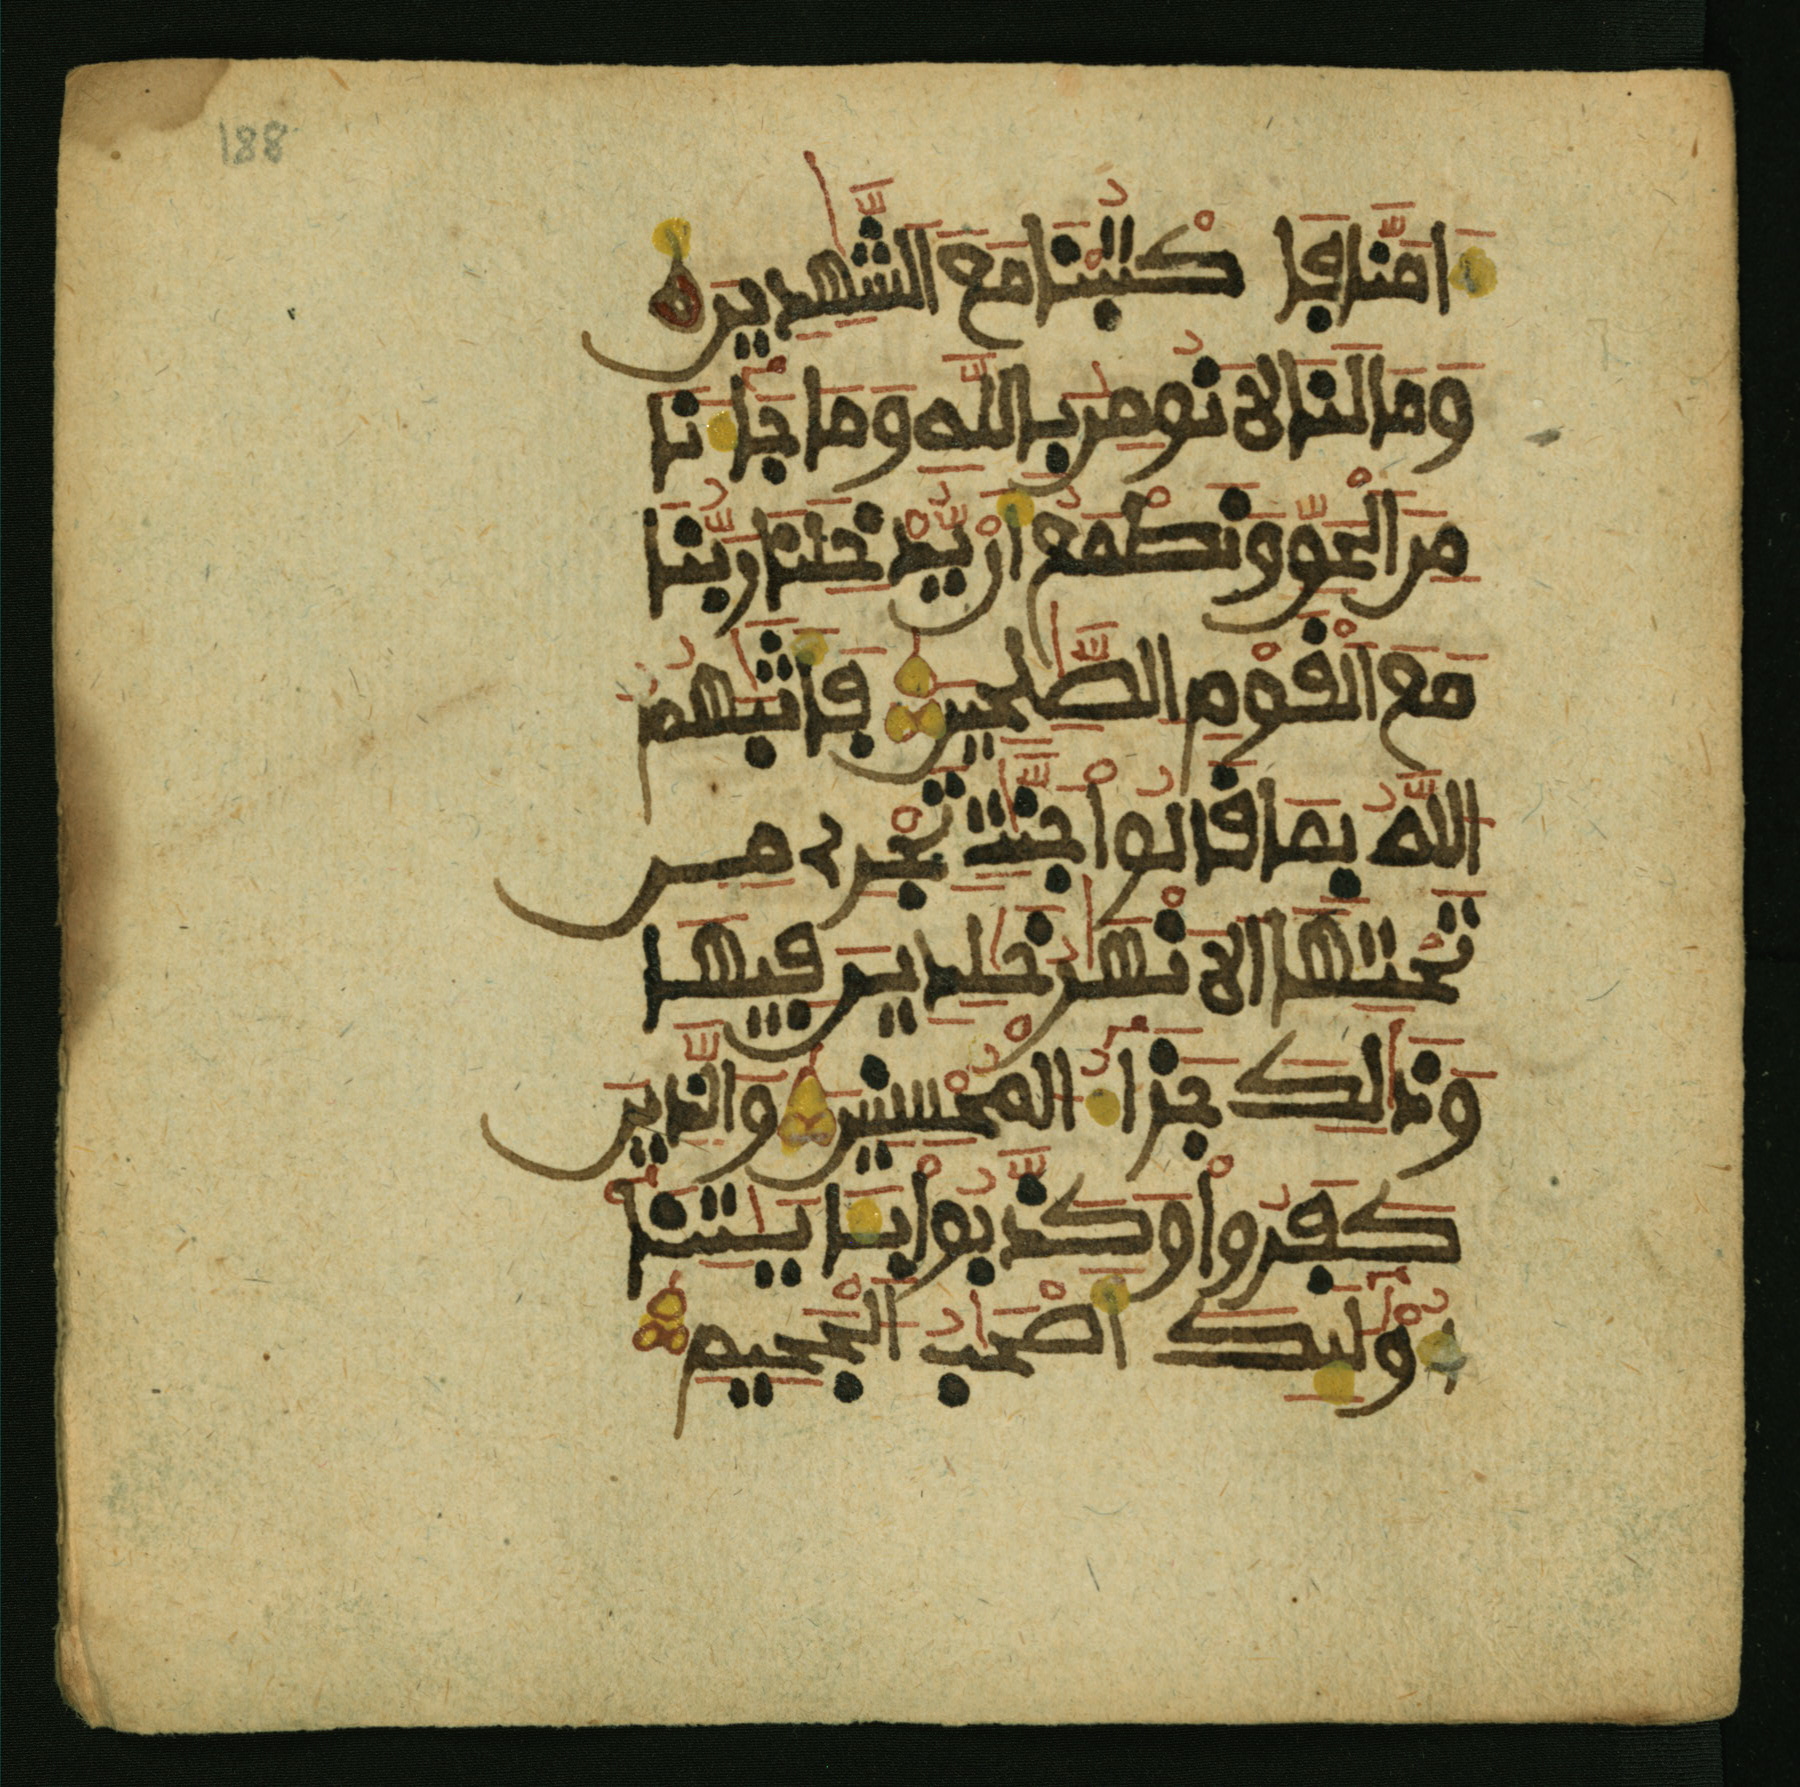 188
ءَامَنَّا فَاكْتُبْنَا مَعَ الشَّٰهِدِينَ
وَمَا لَنَا لَا نُومِنُ بِاللَّهِ وَمَا جَآءَنَا
مِنَ الْحَقِّ وَنَطْمَعُ أَنْ يُّدْخِلَنَا رَبُّنَا
مَعَ الْقَوْمِ الصَّٰلِحِينَ فَأَثَٰبَهُمُ
اللَّهُ بِمَا قَالُوا جَنَّٰتٍ تَجْرِي مِن
تَحْتِهَا الْأَنْهَٰرُ خَٰلِدِينَ فِيهَا
وَذَٰلِكَ جَزَآءُ الْمُحْسِنِينَ وَالَّذِينَ
كَفَرُواْ وَكَذَّبُواْ بِـَٔايَٰتِنَآ
أُوْلَٰٓئِكَ أَصْحَٰبُ الْجَحِيمِ